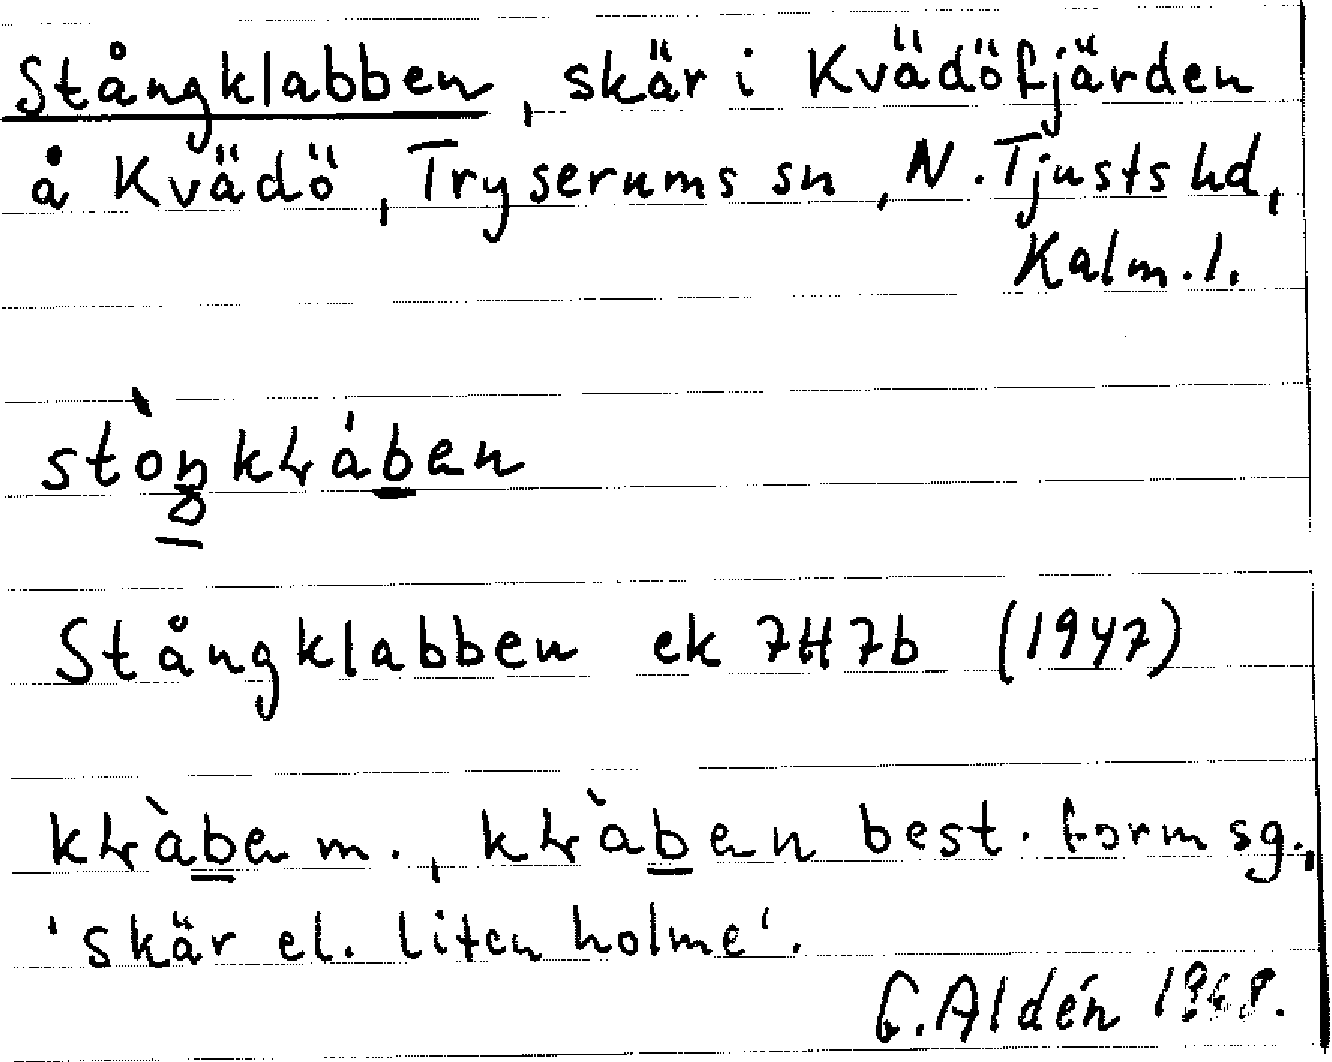 Stångklabben, skär i Kvädöfjärden
å Kvädö, Tryserums sn, N. Tjusts hd,
Kalm. l.
stòŋkłáben
Stångklabben ek 7H7b (1947)
kłàbe m., kłàben best. form sg.,
'skär el. liten holme'.
G. Aldén 1968.